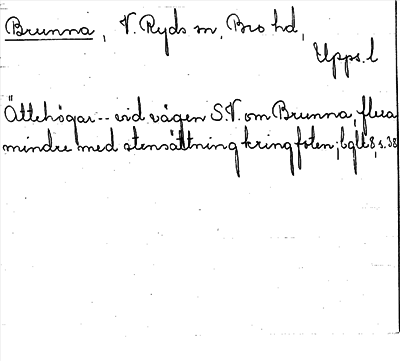 Brunna, V. Ryds sn, Bro hd,
Upps. l
Ättehögar-- vid vägen S.V. om Brunna, flera
mindre med stensättning kring foten; s. 38